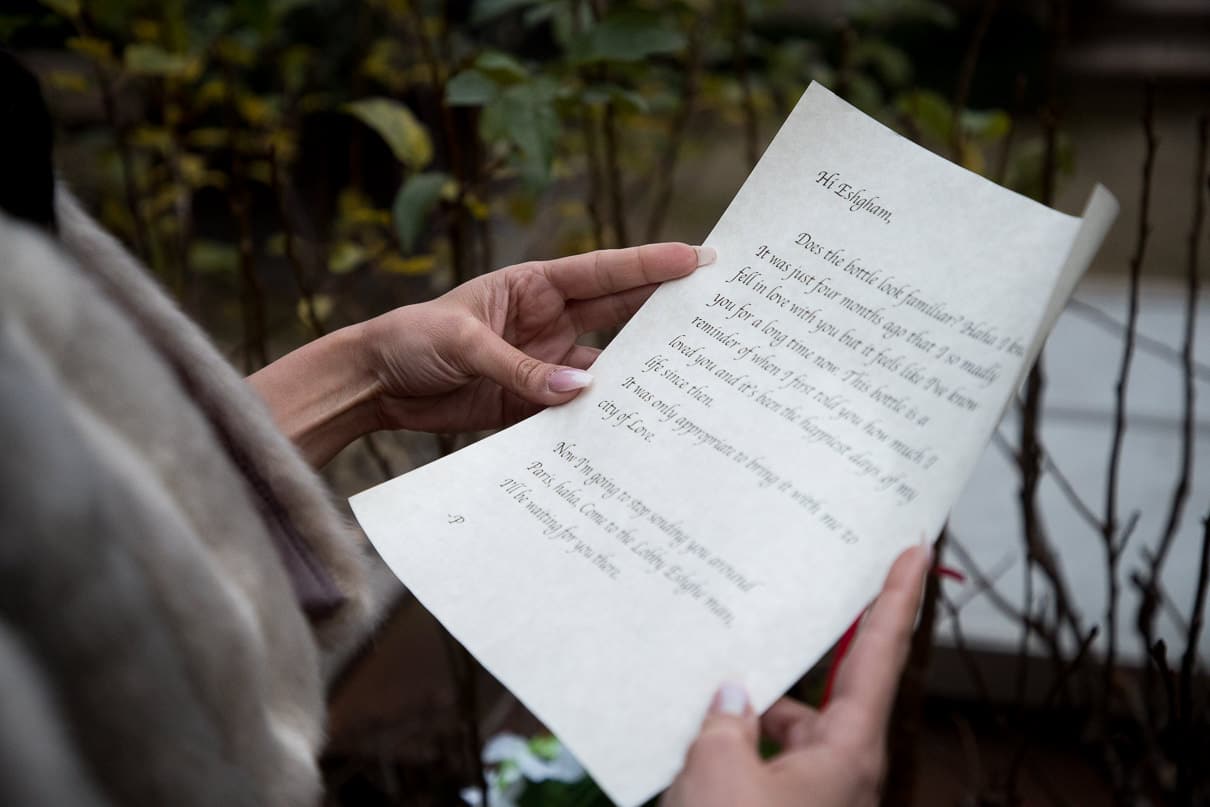 Hi Eshgham,
Does the bottle look familiar? Haha I
It was just four months ago that I so madly
fell in love with you but it feels like I've know
you for a long time now. This bottle is a
reminder of when I first told you how much I
loved you and it's been the happiest days of my
life since then.
It was only appropriate to bring it with me to
city of Love.
Now I'm going to stop sending you around
Paris, haha. Come to the Lobby Eshghe man,
I'll be waiting for you there.
-P